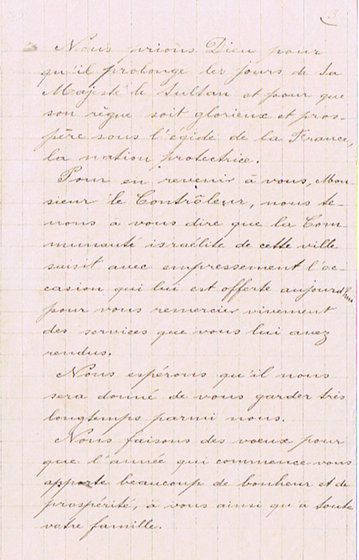 3
Nous prions Dieu pour
qu'il prolonge les jours de Sa
Majesté le Sultan et pour que
son règne soit glorieux et pros-
père sous l'égide de la France,
la nation protectrice.
Pour en revenir à vous, Mon-
sieur le Contrôleur, nous te-
nons à vous dire que la Com-
munauté israélite de cette ville
saisit avec empressement l'oc-
casion qui lui est offerte aujourd'hui
pour vous remercier vivement
des services que vous lui avez
rendus.
Nous espérons qu'il nous
sera donné de vous garder très
longtemps parmi nous.
Nous faisons des voeux pour
que l'année qui commence vous
apporte beaucoup de bonheur et de
prospérité, à vous ainsi qu'à toute
votre famille.